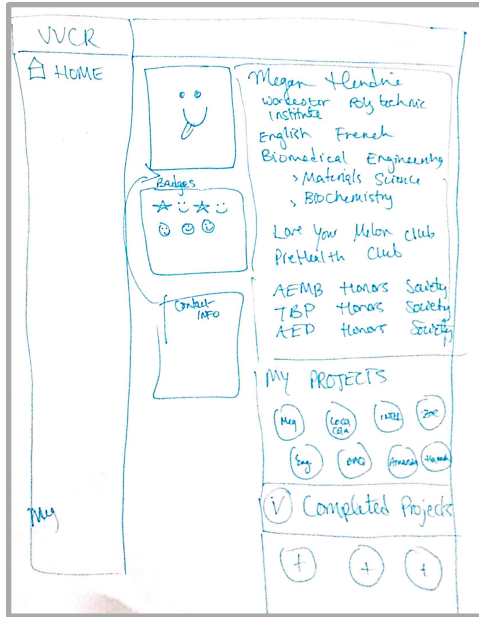 VVCR
HOME
Badges
Contact
INFO
My
Megan Hendrie
Worcester Polytechnic
Institute
English French
Biomedical Engineering
> Materials Science
> Biochemistry
Love Your Melon Club
PreHealth Club
AEMB Honors Society
TBP Honors Society
AED Honors Society
MY PROJECTS
Meg
Coca
Cola
Zoe
Eng.
Amanda
Hannah
V Completed Projects
+ + +